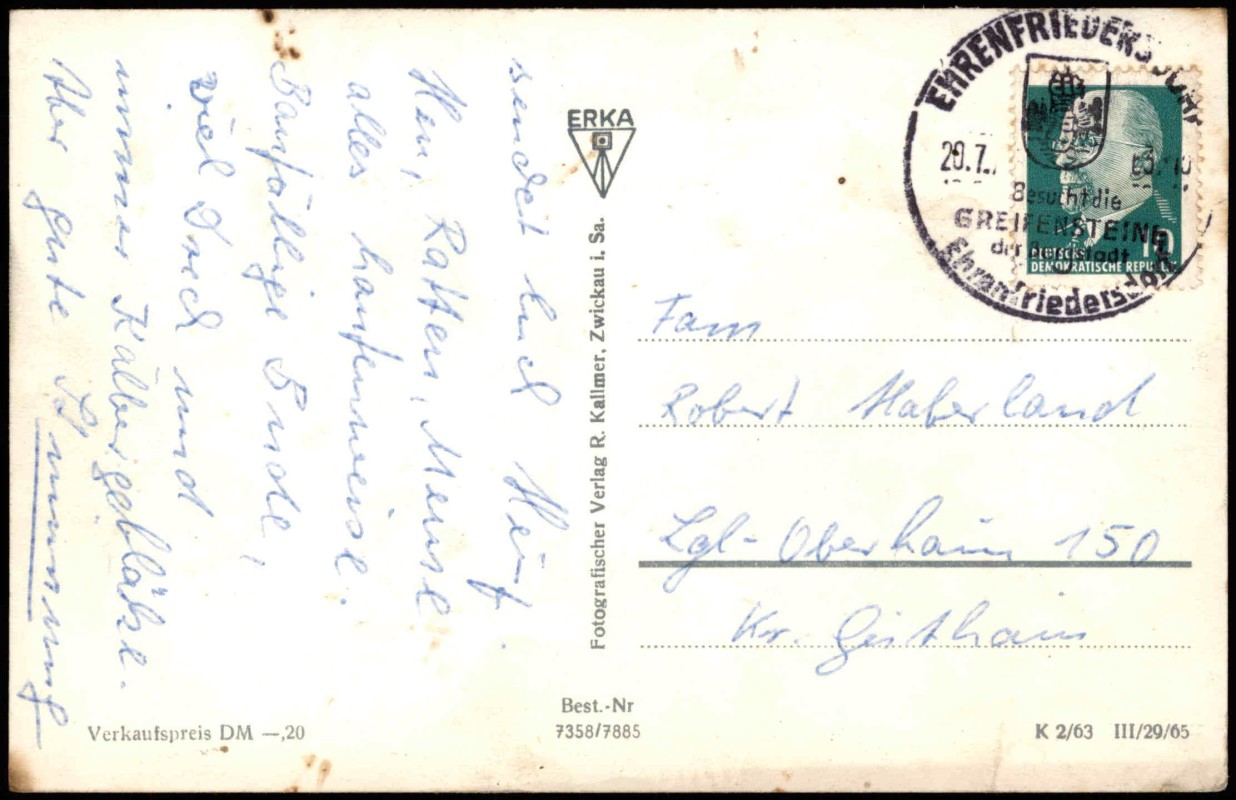 sendet Euch Heinz.
Heu, Ratten, Meuse
alles haufenweise.
Baufällige Bude,
viel Dreck und
immer Kälbergeblätze.
Aber gute Stimmung
ERKA
Fotografischer Verlag R. Kallmer, Zwickau i. Sa.
Best.-Nr
7358/7885
Verkaufspreis DM —,20
EHRENFRIEDERSDORF
20.7.
Besucht die
GREIFENSTEINE
der Bergstadt
Ehrenfriedersdorf
10
DEUTSCHE
DEMOKRATISCHE REPUBLIK
Fam
Robert Haberland
Lgl-Oberhain 150
Kr. Geithain
K 2/63 III/29/65